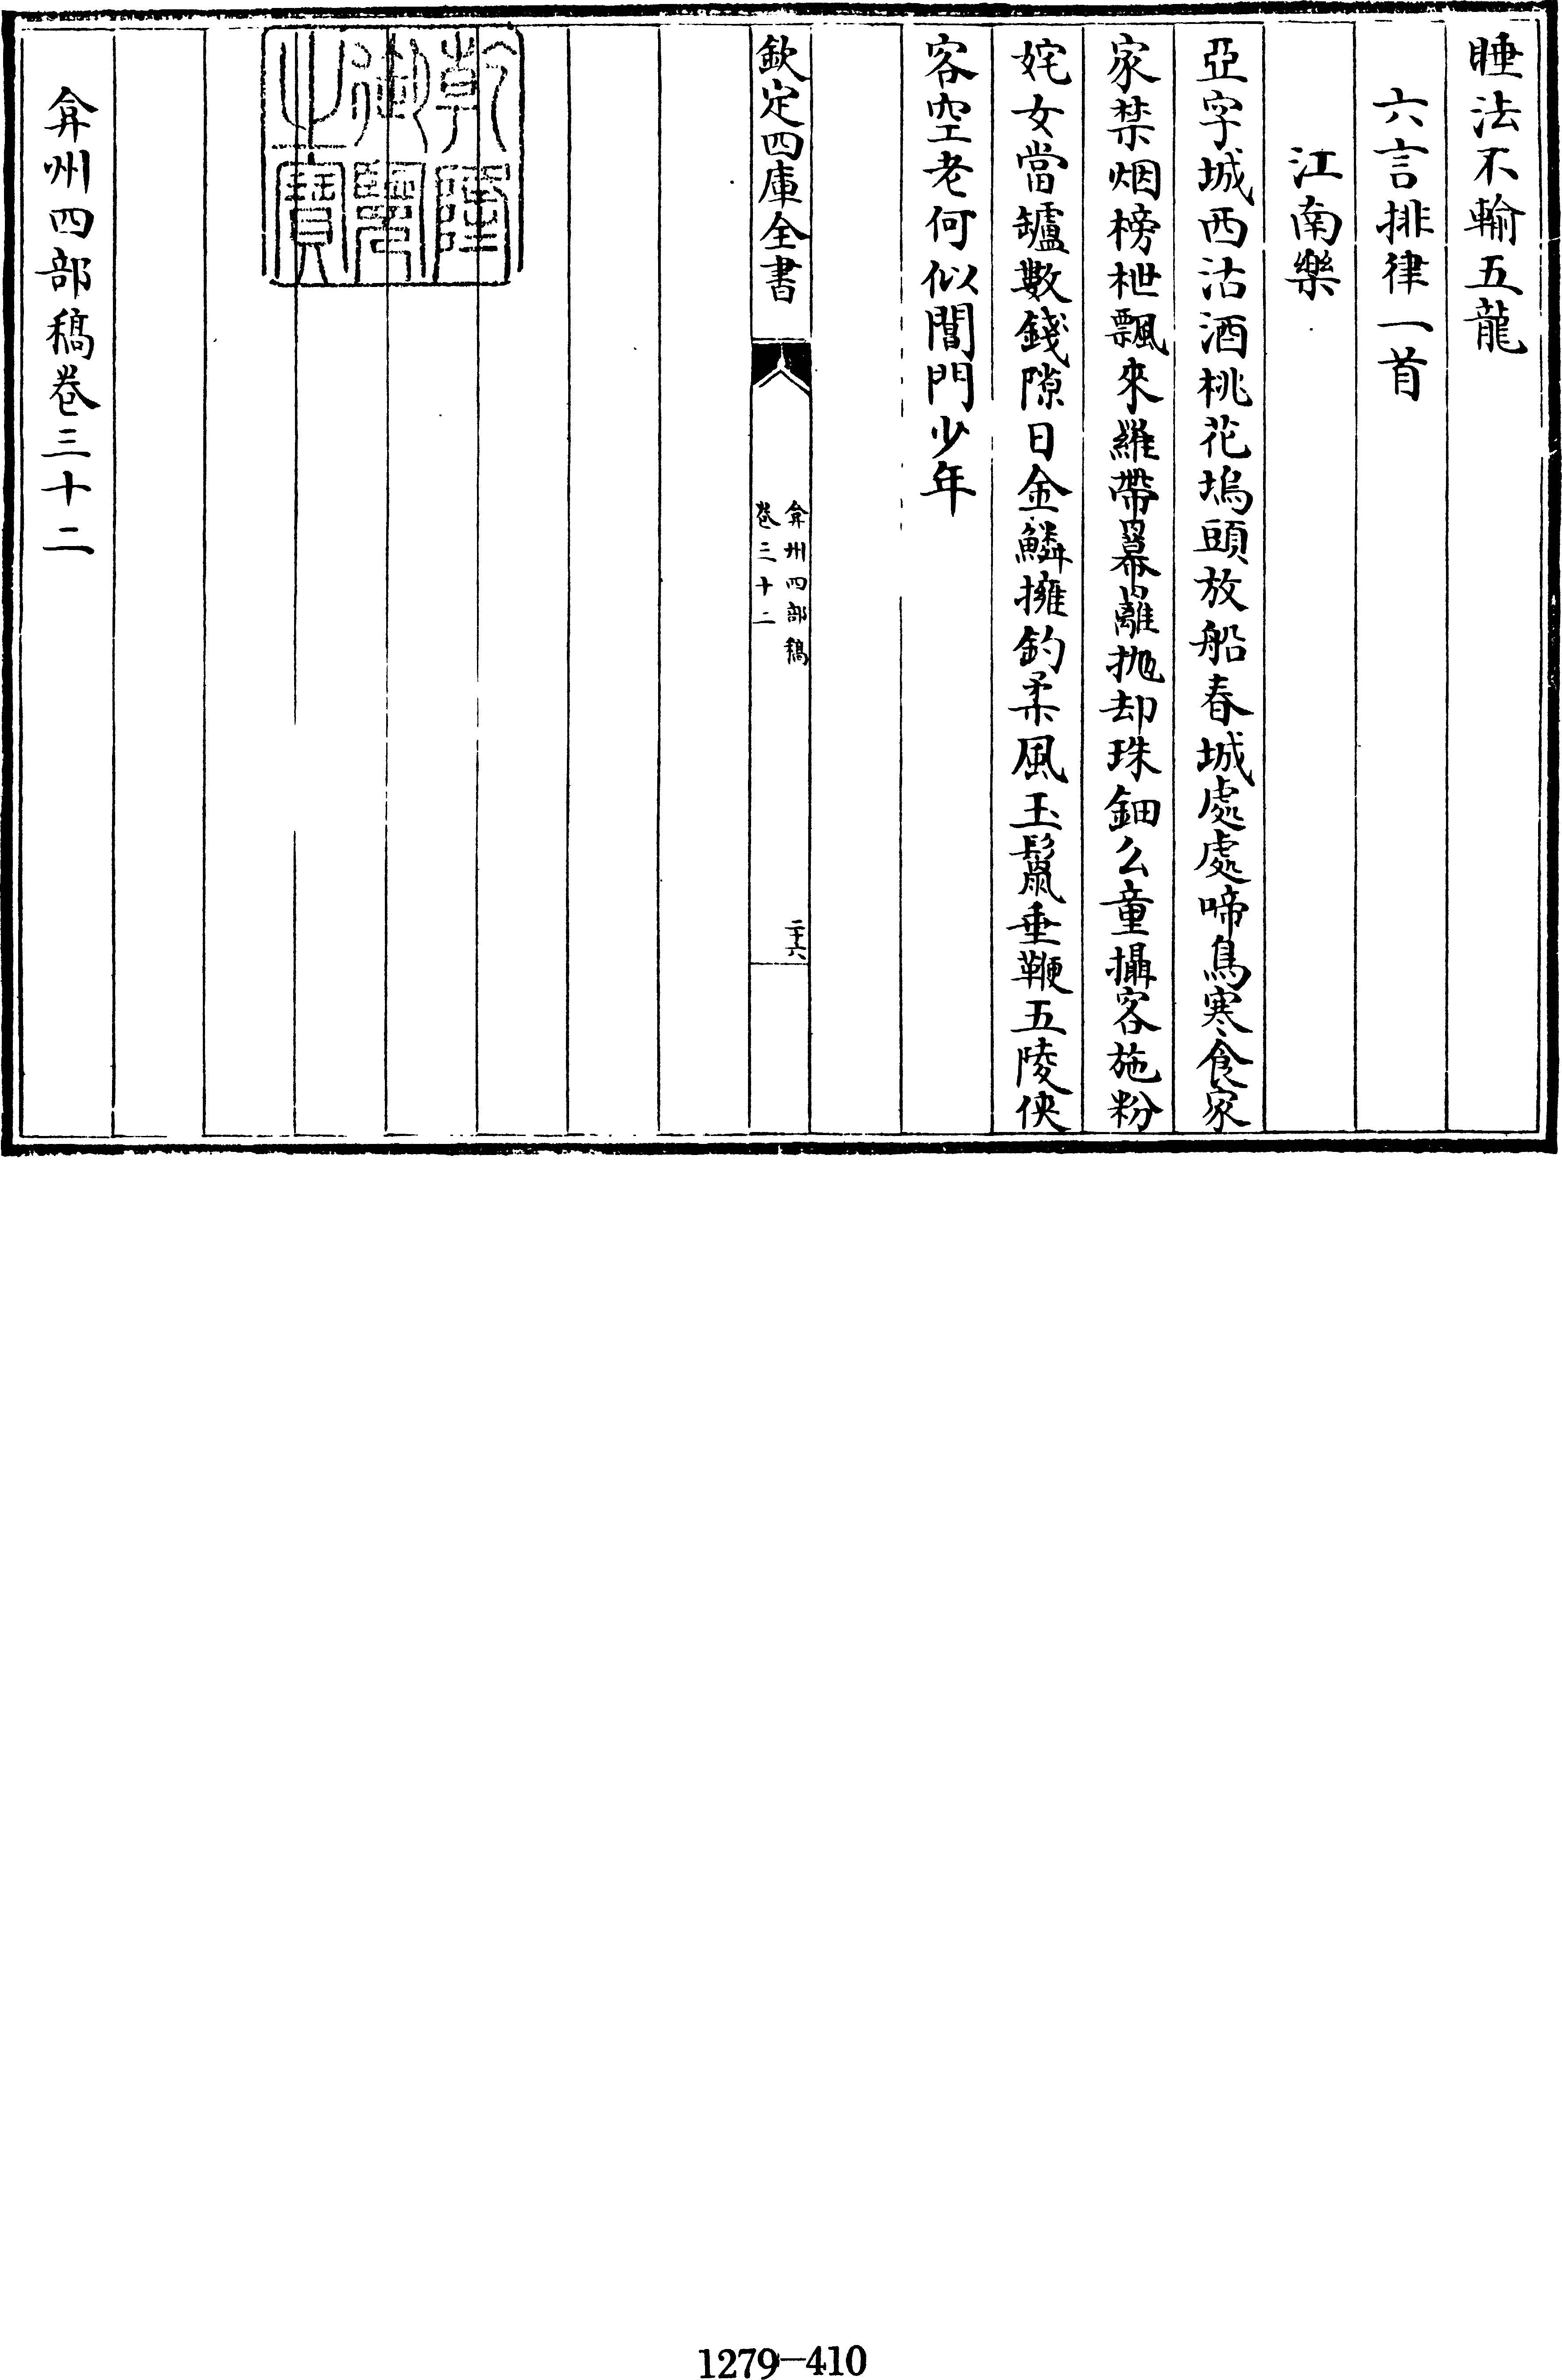 睡法不輸五龍
六言排律一首
江南樂
亞字城西沽酒桃花塢頭放船春城處處啼鳥寒食家
家禁烟榜枻飄來羅帶冪䍦抛却珠鈿么童攝客施粉
姹女當罏數錢隙日金鱗擁釣柔風玉鬣垂鞭五陵俠
客空老何似閶門少年
欽定四庫全書
弇州四部稿
卷三十二
二十六
乾隆御覽之寶
弇州四部稿卷三十二
1279-410